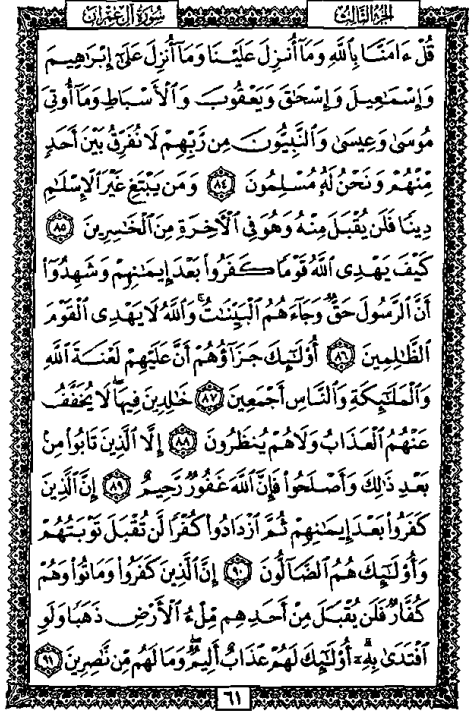 سُورَةُ آلِ عِمْرَانَ
الجُزْءُ الثَّالِثُ
قُلْ ءَامَنَّا بِاللَّهِ وَمَآ أُنزِلَ عَلَيْنَا وَمَآ أُنزِلَ عَلَىٰٓ إِبْرَٰهِيمَ
وَإِسْمَٰعِيلَ وَإِسْحَٰقَ وَيَعْقُوبَ وَالْأَسْبَاطِ وَمَآ أُوتِىَ
مُوسَىٰ وَعِيسَىٰ وَالنَّبِيُّونَ مِن رَّبِّهِمْ لَا نُفَرِّقُ بَيْنَ أَحَدٍ
مِّنْهُمْ وَنَحْنُ لَهُۥ مُسْلِمُونَ ٨٤ وَمَن يَبْتَغِ غَيْرَ الْإِسْلَٰمِ
دِينًا فَلَن يُقْبَلَ مِنْهُ وَهُوَ فِى الْءَاخِرَةِ مِنَ الْخَٰسِرِينَ ٨٥
كَيْفَ يَهْدِى اللَّهُ قَوْمًا كَفَرُوا۟ بَعْدَ إِيمَٰنِهِمْ وَشَهِدُوٓا۟
أَنَّ الرَّسُولَ حَقٌّ وَجَآءَهُمُ الْبَيِّنَٰتُ ۚ وَاللَّهُ لَا يَهْدِى الْقَوْمَ
الظَّٰلِمِينَ ٨٦ أُو۟لَٰٓئِكَ جَزَآؤُهُمْ أَنَّ عَلَيْهِمْ لَعْنَةَ اللَّهِ
وَالْمَلَٰٓئِكَةِ وَالنَّاسِ أَجْمَعِينَ ٨٧ خَٰلِدِينَ فِيهَا لَا يُخَفَّفُ
عَنْهُمُ الْعَذَابُ وَلَا هُمْ يُنظَرُونَ ٨٨ إِلَّا الَّذِينَ تَابُوا۟ مِنۢ
بَعْدِ ذَٰلِكَ وَأَصْلَحُوا۟ فَإِنَّ اللَّهَ غَفُورٌ رَّحِيمٌ ٨٩ إِنَّ الَّذِينَ
كَفَرُوا۟ بَعْدَ إِيمَٰنِهِمْ ثُمَّ ازْدَادُوا۟ كُفْرًا لَّن تُقْبَلَ تَوْبَتُهُمْ
وَأُو۟لَٰٓئِكَ هُمُ الضَّآلُّونَ ٩٠ إِنَّ الَّذِينَ كَفَرُوا۟ وَمَاتُوا۟ وَهُمْ
كُفَّارٌ فَلَن يُقْبَلَ مِنْ أَحَدِهِم مِّلْءُ الْأَرْضِ ذَهَبًا وَلَوِ
افْتَدَىٰ بِهِۦٓ ۗ أُو۟لَٰٓئِكَ لَهُمْ عَذَابٌ أَلِيمٌ وَمَا لَهُم مِّن نَّٰصِرِينَ ٩١
٦١